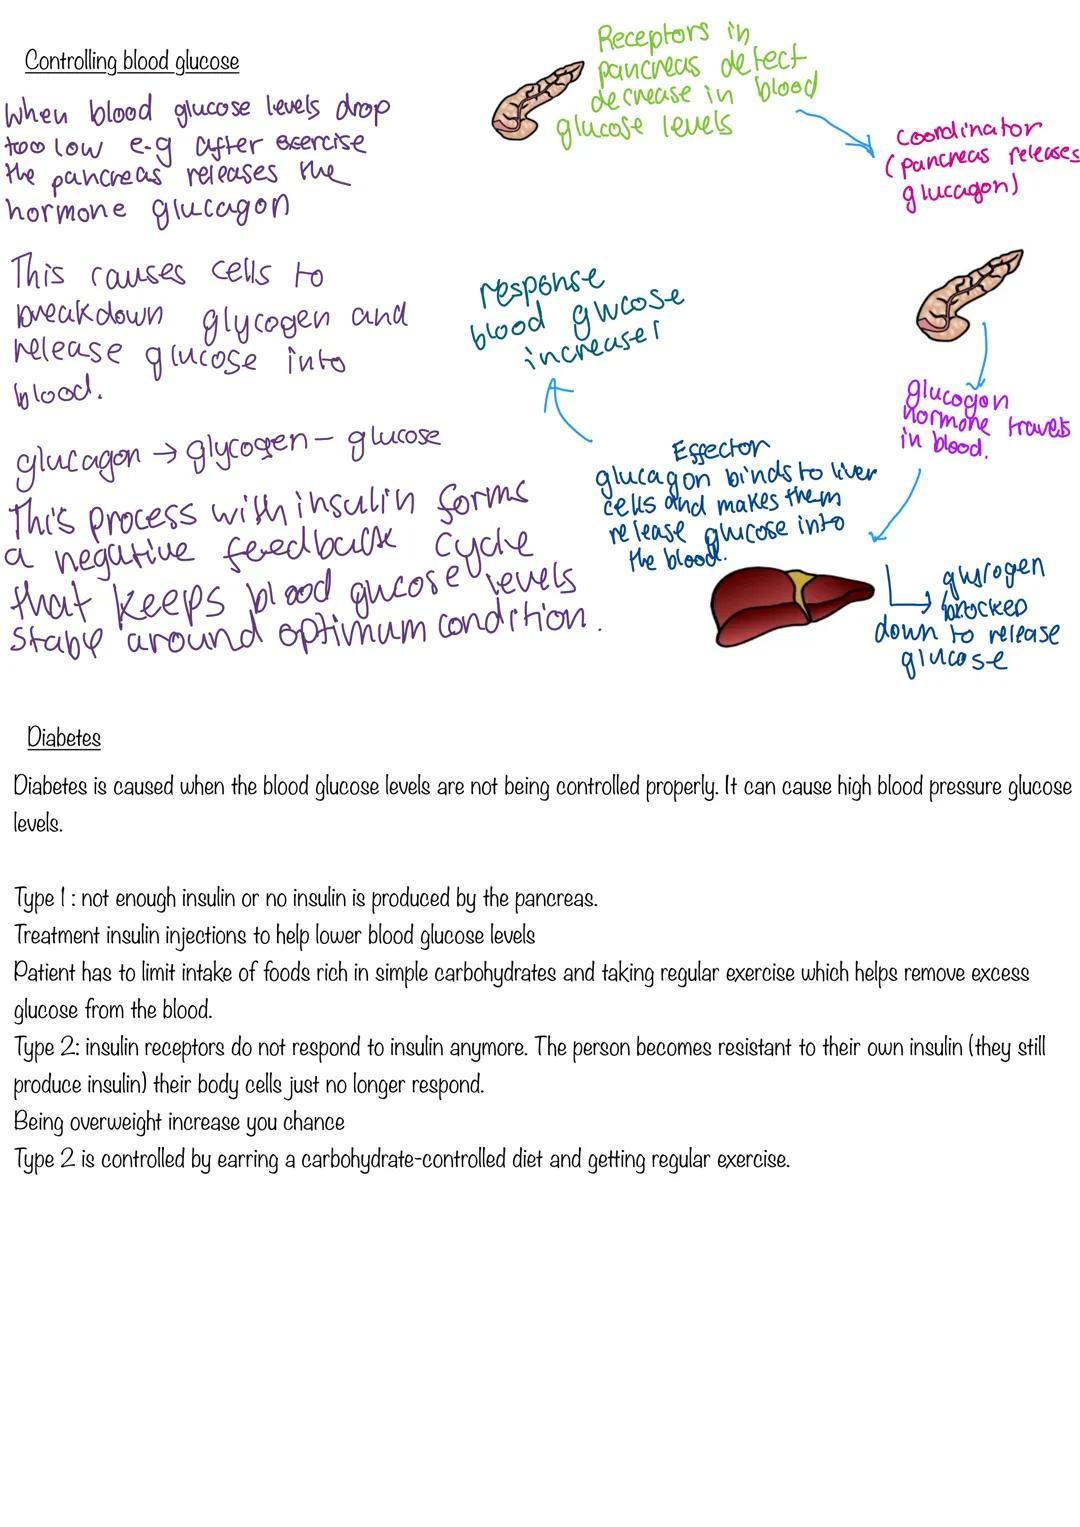 Controlling blood glucose
When blood glucose levels drop
too low e-g after exercise
the pancreas releases the
hormone glucagon
This causes cells to
breakdown glycogen and
release glucose into
blood.
glucagon → glycogen - glucose
This process with insulin forms
a negative feedback cycle
that keeps blood glucose levels
stable around optimum condition.
Receptors in
pancreas detect
decrease in blood
glucose levels
Coordinator
(pancreas releases
glucagon)
glucogon
hormone travels
in blood.
Effector
glucagon binds to liver
cells and makes them
release glucose into
the blood.
glycogen
brocked
down to release
glucose
response
blood glucose
increases
Diabetes
Diabetes is caused when the blood glucose levels are not being controlled properly. It can cause high blood pressure glucose
levels.
Type 1 : not enough insulin or no insulin is produced by the pancreas.
Treatment insulin injections to help lower blood glucose levels
Patient has to limit intake of foods rich in simple carbohydrates and taking regular exercise which helps remove excess
glucose from the blood.
Type 2: insulin receptors do not respond to insulin anymore. The person becomes resistant to their own insulin (they still
produce insulin) their body cells just no longer respond.
Being overweight increase you chance
Type 2 is controlled by earring a carbohydrate-controlled diet and getting regular exercise.